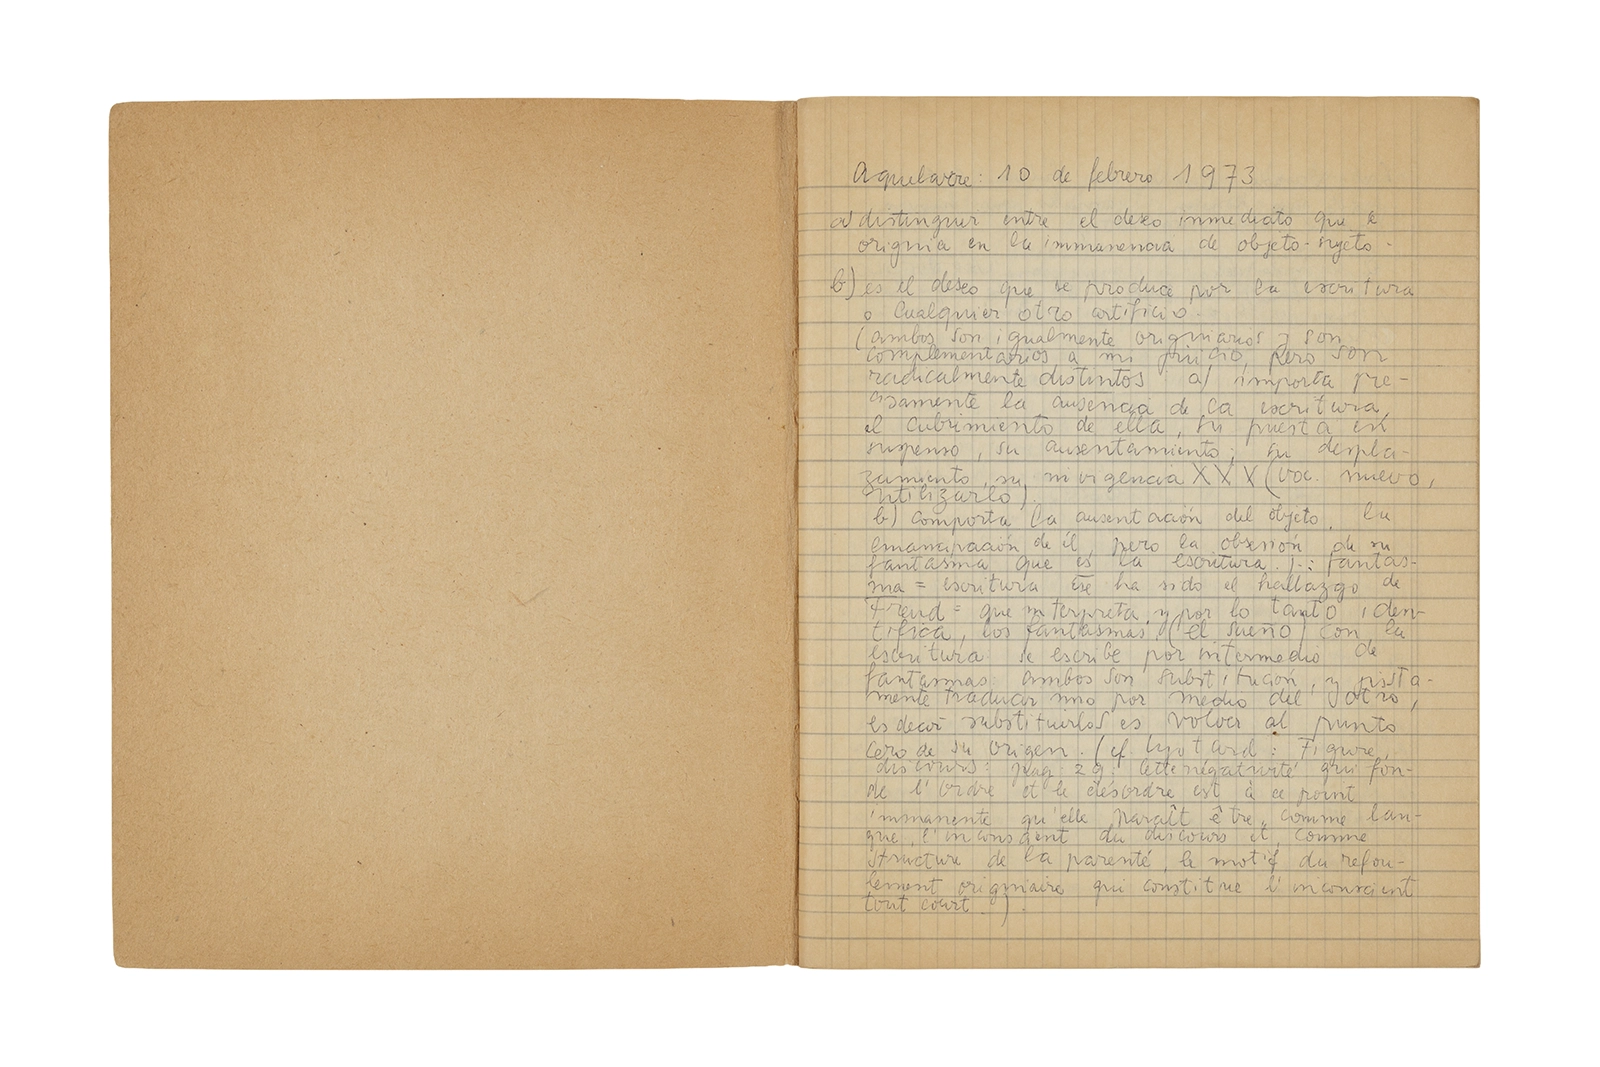 Aquelarre: 10 de febrero 1973
a) distinguir entre el deseo inmediato que se
origina en la immanencia de objeto-sujeto.
b) es el deseo que se produce por la escritura
o cualquier otro artificio.
(ambos son igualmente originarios y son
complementarios a mi juicio, pero son
radicalmente distintos a) importa pre-
cisamente la ausencia de la escritura,
el cubrimiento de ella, su puesta en
suspenso, su ausentamiento; su despla-
zamiento, su invigencia XXX (voc. nuevo,
utilizarlo).
b) comporta la ausentación del objeto, la
emancipación de él, pero la obsesión de su
fantasma que es la escritura.). : fantas-
ma = escritura ése ha sido el hallazgo de
Freud = que interpreta, y por lo tanto iden-
tifica, los fantasmas (el sueño) con la
escritura: se escribe por intermedio de
fantasmas: ambos son substitución, y justa-
mente traducir uno por medio del otro,
es decir substituirlos es volver al punto
cero de su origen. (cf. Lyotard: Figure,
discours: pag. 29: cette négativité qui fon-
de l'ordre et le désordre est à ce point
immanente qu'elle paraît être, comme lan-
gue, l'inconscient du discours et, comme
structure de la parenté, le motif du refou-
lement originaire qui constitue l'inconscient
tout court.).